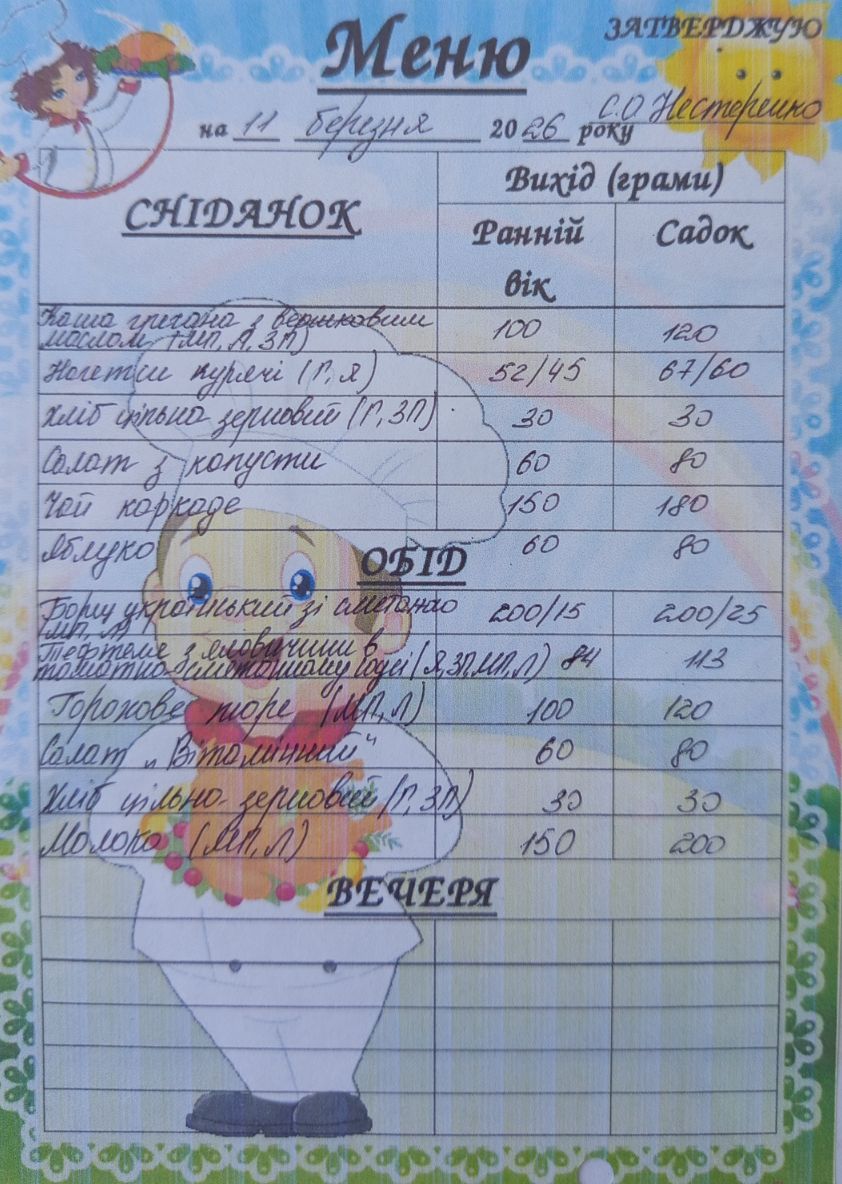 Меню
ЗАТВЕРДЖУЮ
С.О Нестеренко
на 11 березня 2026 року
СНІДАНОК Вихід (грами)
Ранній вік Садок
Каша гречана з вершковим
маслом (МП, Л, ЗП) 100 120
Нагетси курячі (П, Я) 52/45 67/60
Хліб цільно зерновий (П, ЗП) 30 30
Салат з капусти 60 80
Чай каркаде 150 180
Яблуко 60 80
ОБІД
Борщ український зі сметаною
(МП, Л) 200/15 200/25
Тефтеля з яловичини в
томатно-сметанному соусі (Я, ЗП, МП, Л) 84 113
Горохове пюре (МП, Л) 100 120
Салат „Вітамінний" 60 80
Хліб цільно-зерновий (П, ЗП) 30 30
Молоко (МП, Л) 150 200
ВЕЧЕРЯ